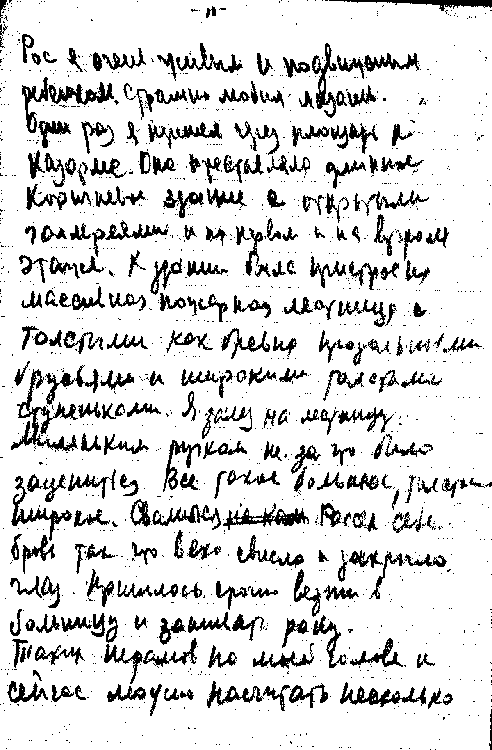 - 11 -
Рос я очень живым и подвижным
ребенком. Страшно любил лазать.
Один раз я пришел через площадь к
казарме. Она представляла длинное
коричневое здание с открытыми
галлереями и на первом и на втором
этаже. К зданию была пристроена
массивная пожарная лестница с
толстыми как бревна продольными
брусьями и широкими толстыми
ступеньками. Я залез на лестницу.
Маленьким ручкам не за что было
зацепится все такое большое, толстое
широкое. Свалился Рассек себе
бровь так что веко свисло и закрыло
глаз. Пришлось срочно везти в
больницу и зашивать рану.
Таких шрамов на моей голове и
сейчас можно насчитать несколько